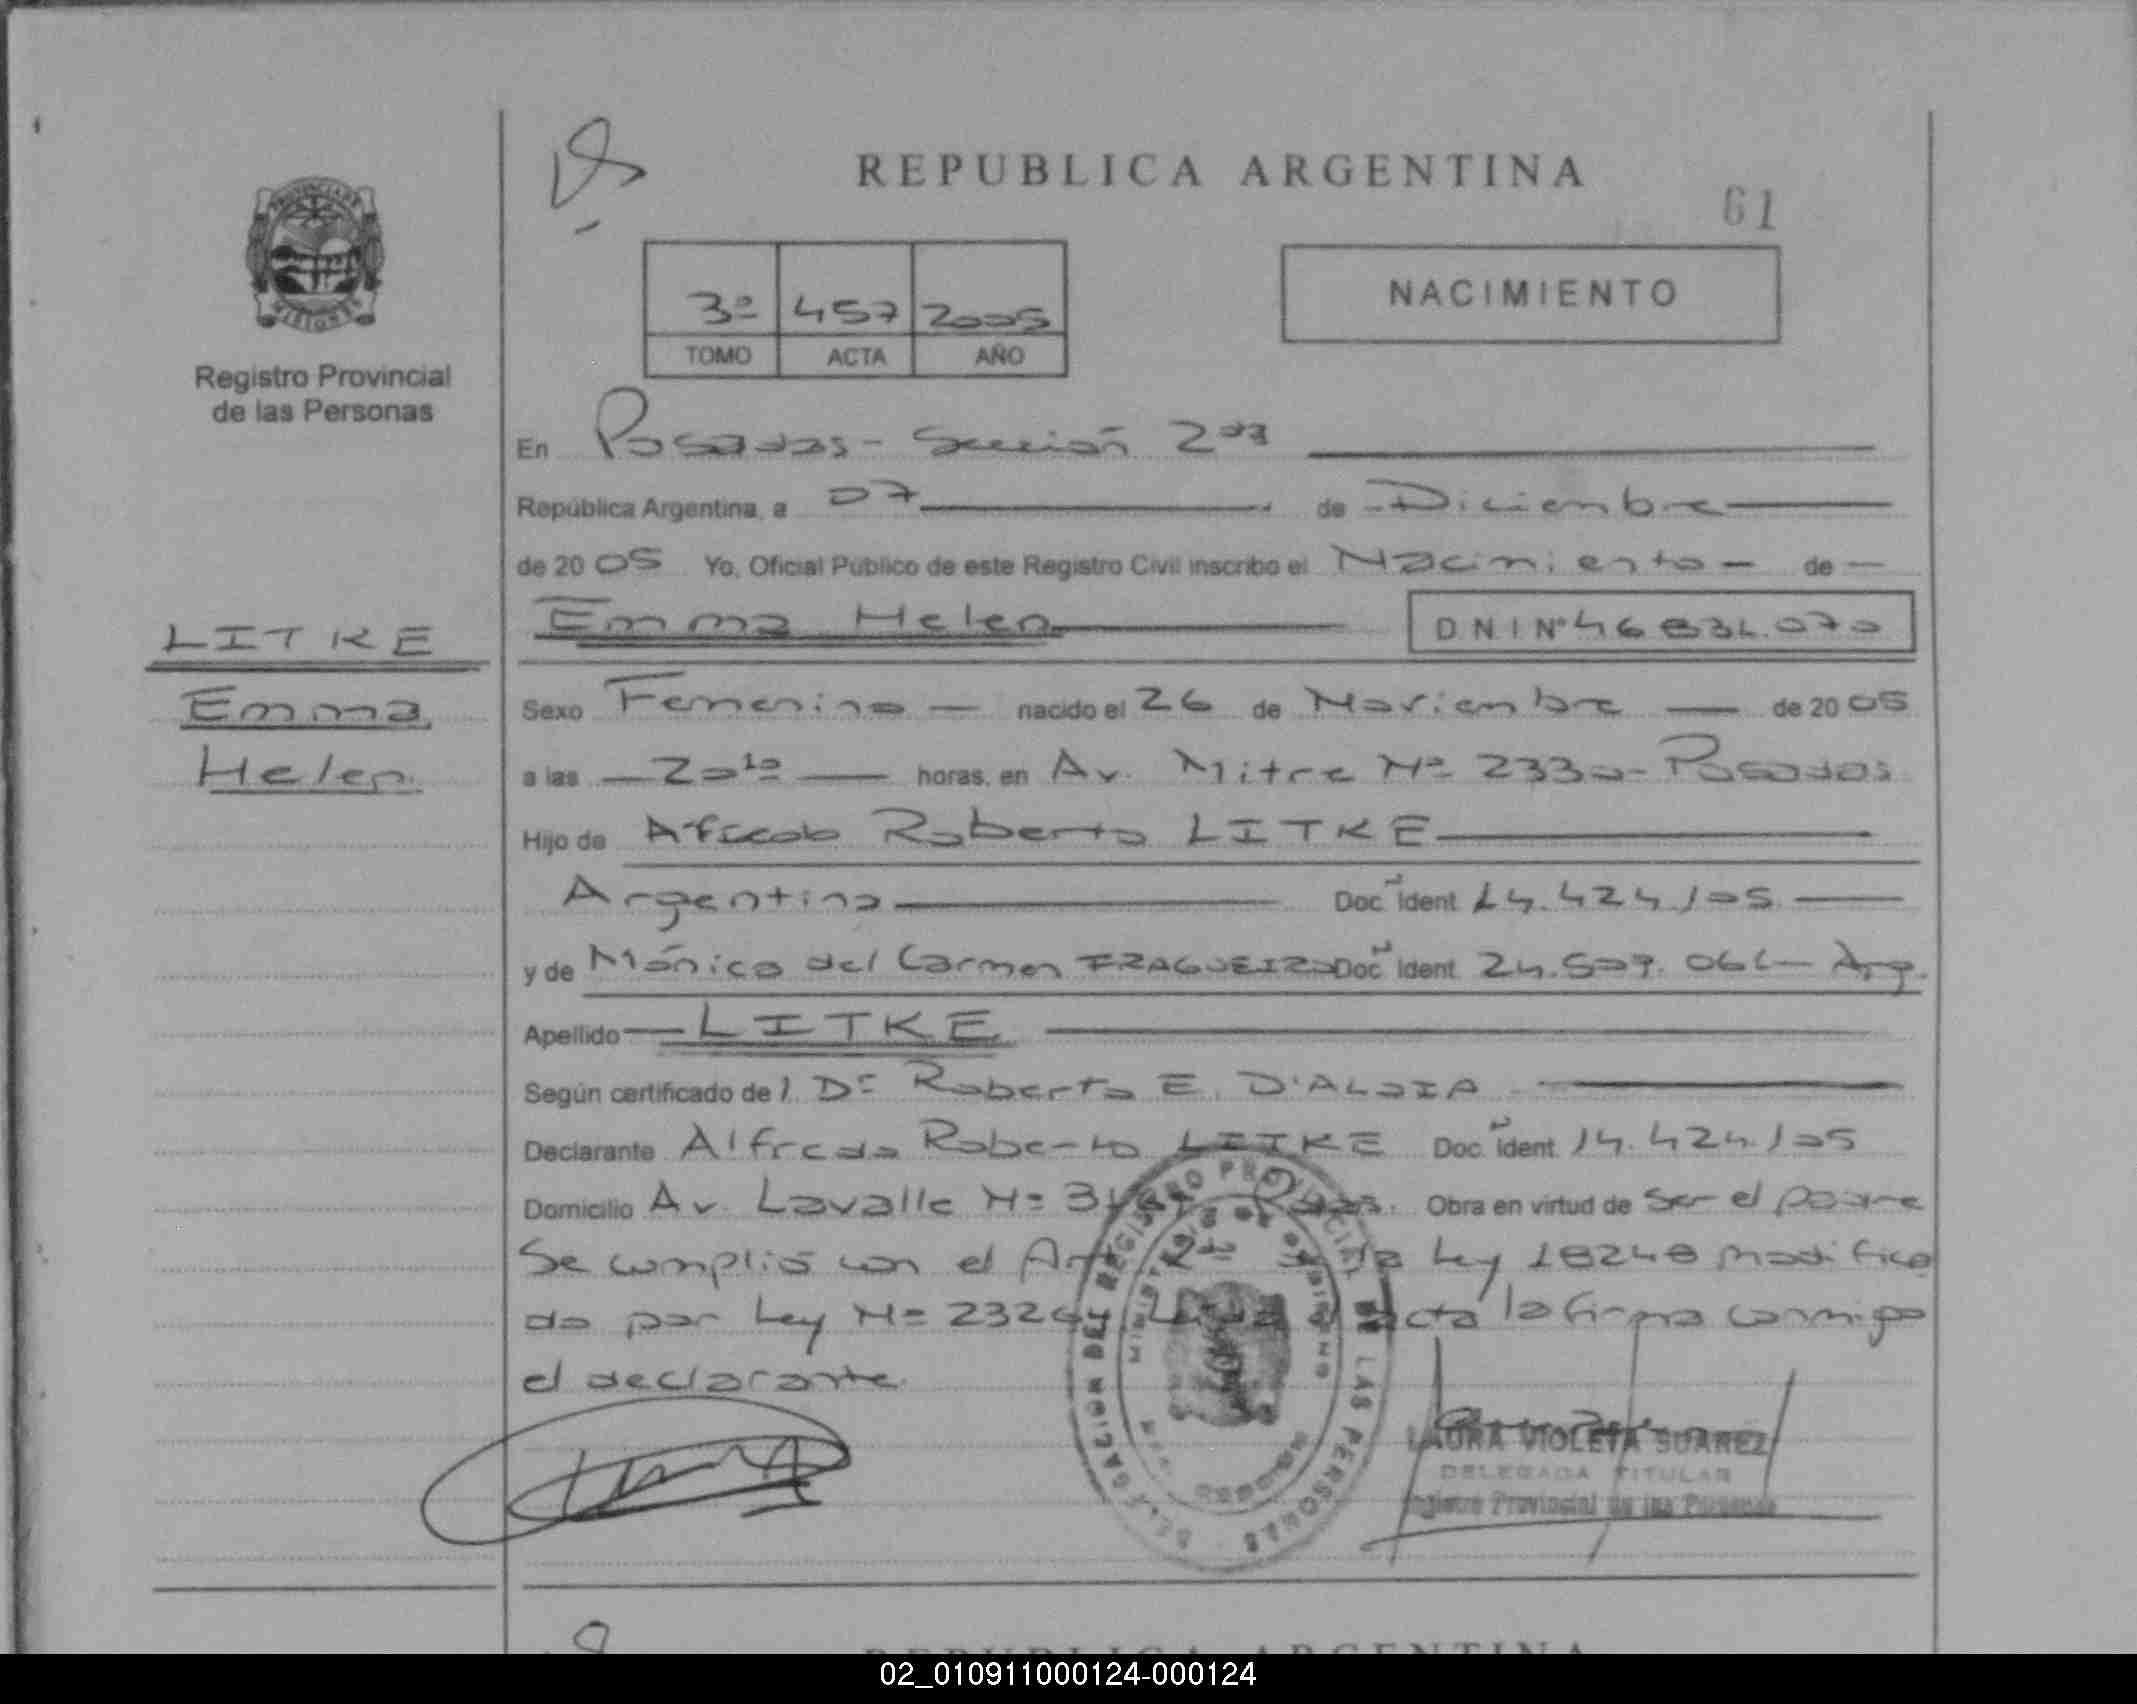 REPUBLICA ARGENTINA
61
3º 457 2005
TOMO ACTA AÑO
NACIMIENTO
Registro Provincial
de las Personas
En Posadas - Sección 2da
República Argentina, a 07 de Diciembre
de 2005 Yo, Oficial Público de este Registro Civil inscribo el Nacimiento - de
LITKE
Emma
Helen
Emma Helen DNI Nº
Sexo Femenino nacido el 26 de Noviembre de 2005
a las 20 horas, en Av. Mitre Nº 2330 - Posadas
Hijo de Alfredo Roberto LITKE
Argentino Doc. Ident. 14.424.105
y de Mónica del Carmen FRAGUEIRO Doc. Ident. Arg.
Apellido LITKE
Según certificado de l Dr Roberto E. D'ALOIA
Declarante Alfredo Roberto LITKE Doc. Ident. 14.424.105
Domicilio Av. Lavalle Nº Obra en virtud de ser el padre
Se cumplió con el Art 2do de la Ley 18248 modifica
do por Ley Nº acta la firma conmigo
el declarante.
DELEGACION DEL REGISTRO PROVINCIAL DE LAS PERSONAS
LAURA VIOLETA SUAREZ
DELEGADA TITULAR
Registro Provincial de las Personas
REPUBLICA ARGENTINA
02_010911000124-000124